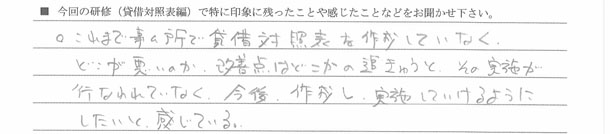 ■ 今回の研修（貸借対照表編）で特に印象に残ったことや感じたことなどをお聞かせ下さい。
○ これまで事ム所で貸借対照表を作成していなく、
どこが悪いのか、改善点はどこかの追きゅうと、その実施が
行なわれていなく、今後、作成し、実施していけるように
したいと、感じている。